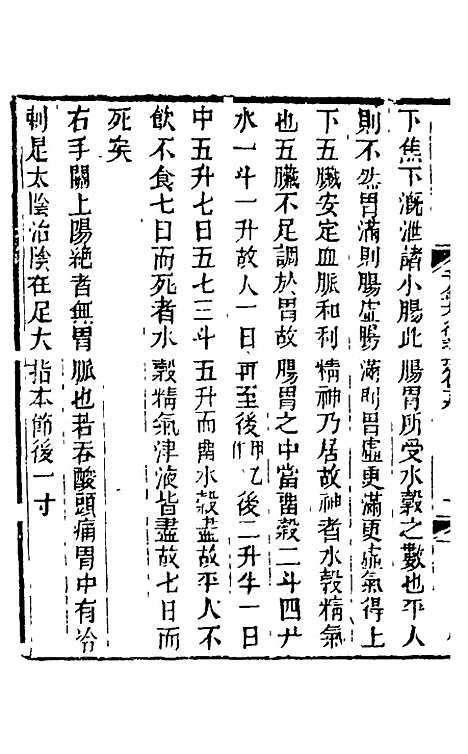 下焦下溉泄諸小腸此腸胃所受水穀之數也平人
則不然胃滿則腸虛腸滿則胃虛更滿更虛氣得上
下五臟安定血脈和利精神乃居故神者水穀精氣
也五臟不足調於胃故腸胃之中當留穀二斗四升
水一斗一升故人一日再至後甲乙作後二升半一日
中五升七日五七三斗五升而留水穀盡故平人不
飲不食七日而死者水穀精氣津液皆盡故七日而
死矣
右手關上陽絶者無胃脈也若吞酸頭痛胃中有冷
刺足太陰治陰在足大指本節後一寸